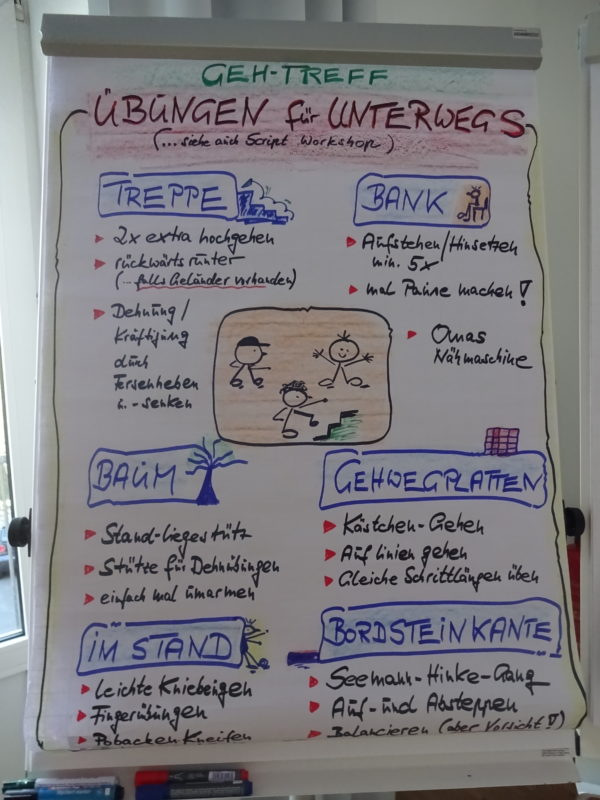 GEH-TREFF
ÜBUNGEN für UNTERWEGS
(... siehe auch Script Workshop)
TREPPE
2x extra hochgehen
rückwärts runter
(... falls Geländer vorhanden)
Dehnung/
Kräftigung
durch
Fersenheben
u. -senken
BANK
Aufstehen/Hinsetzen
min. 5x
mal Pause machen!
Omas
Nähmaschine
BAUM
Stand-liegestütz
Stütze für Dehnübungen
einfach mal umarmen
GEHWEGPLATTEN
Kästchen-Gehen
Auf linien gehen
Gleiche Schrittlängen üben
IM STAND
leichte Kniebeugen
Fingerübungen
Pobacken Kneifen
BORDSTEINKANTE
Seemann-Hinke-Gang
Auf- und Absteppen
Balancieren (aber Vorsicht!!)